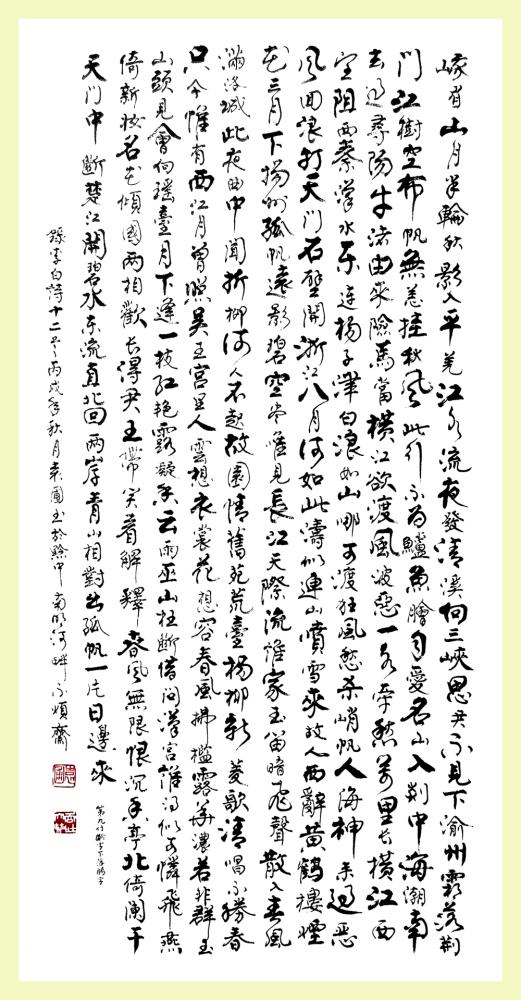 峨眉山月半輪秋影入平羌江水流夜發清溪向三峽思君不見下渝州霜落荊
門江樹空布帆無恙挂秋風此行不為鱸魚膾自愛名山入剡中海潮南
去過尋陽牛渚由來險馬當橫江欲渡風波惡一水牽愁萬里長橫江西
望阻西秦漢水東連楊子津白浪如山哪可渡狂風愁杀峭帆人海神来過惡
風回浪打天門石壁開浙江八月何如此濤似連山噴雪來故人西辭黃鶴樓煙
花三月下揚州孤帆遠影碧空尽唯見長江天際流誰家玉笛暗飛聲散入春風
滿洛城此夜曲中聞折柳何人不起故園情舊苑荒臺楊柳新菱歌清唱不勝春
只今惟有西江月曾照吳王宮里人雲想衣裳花想容春風拂檻露華濃若非群玉
山頭見會向瑤臺月下逢一枝红艳露凝香云雨巫山枉斷借問漢宮誰得似可憐飛燕
倚新妝名花傾國兩相歡长得君王带笑看解釋春風無限恨沉香亭北倚闌干
天門中斷楚江開碧水东流直北回两岸青山相對出孤帆一片日邊來
錄李白詩十二首丙戌年秋月袁國玉於黔中南明河畔不煩齋
第九行斷字下落腸字